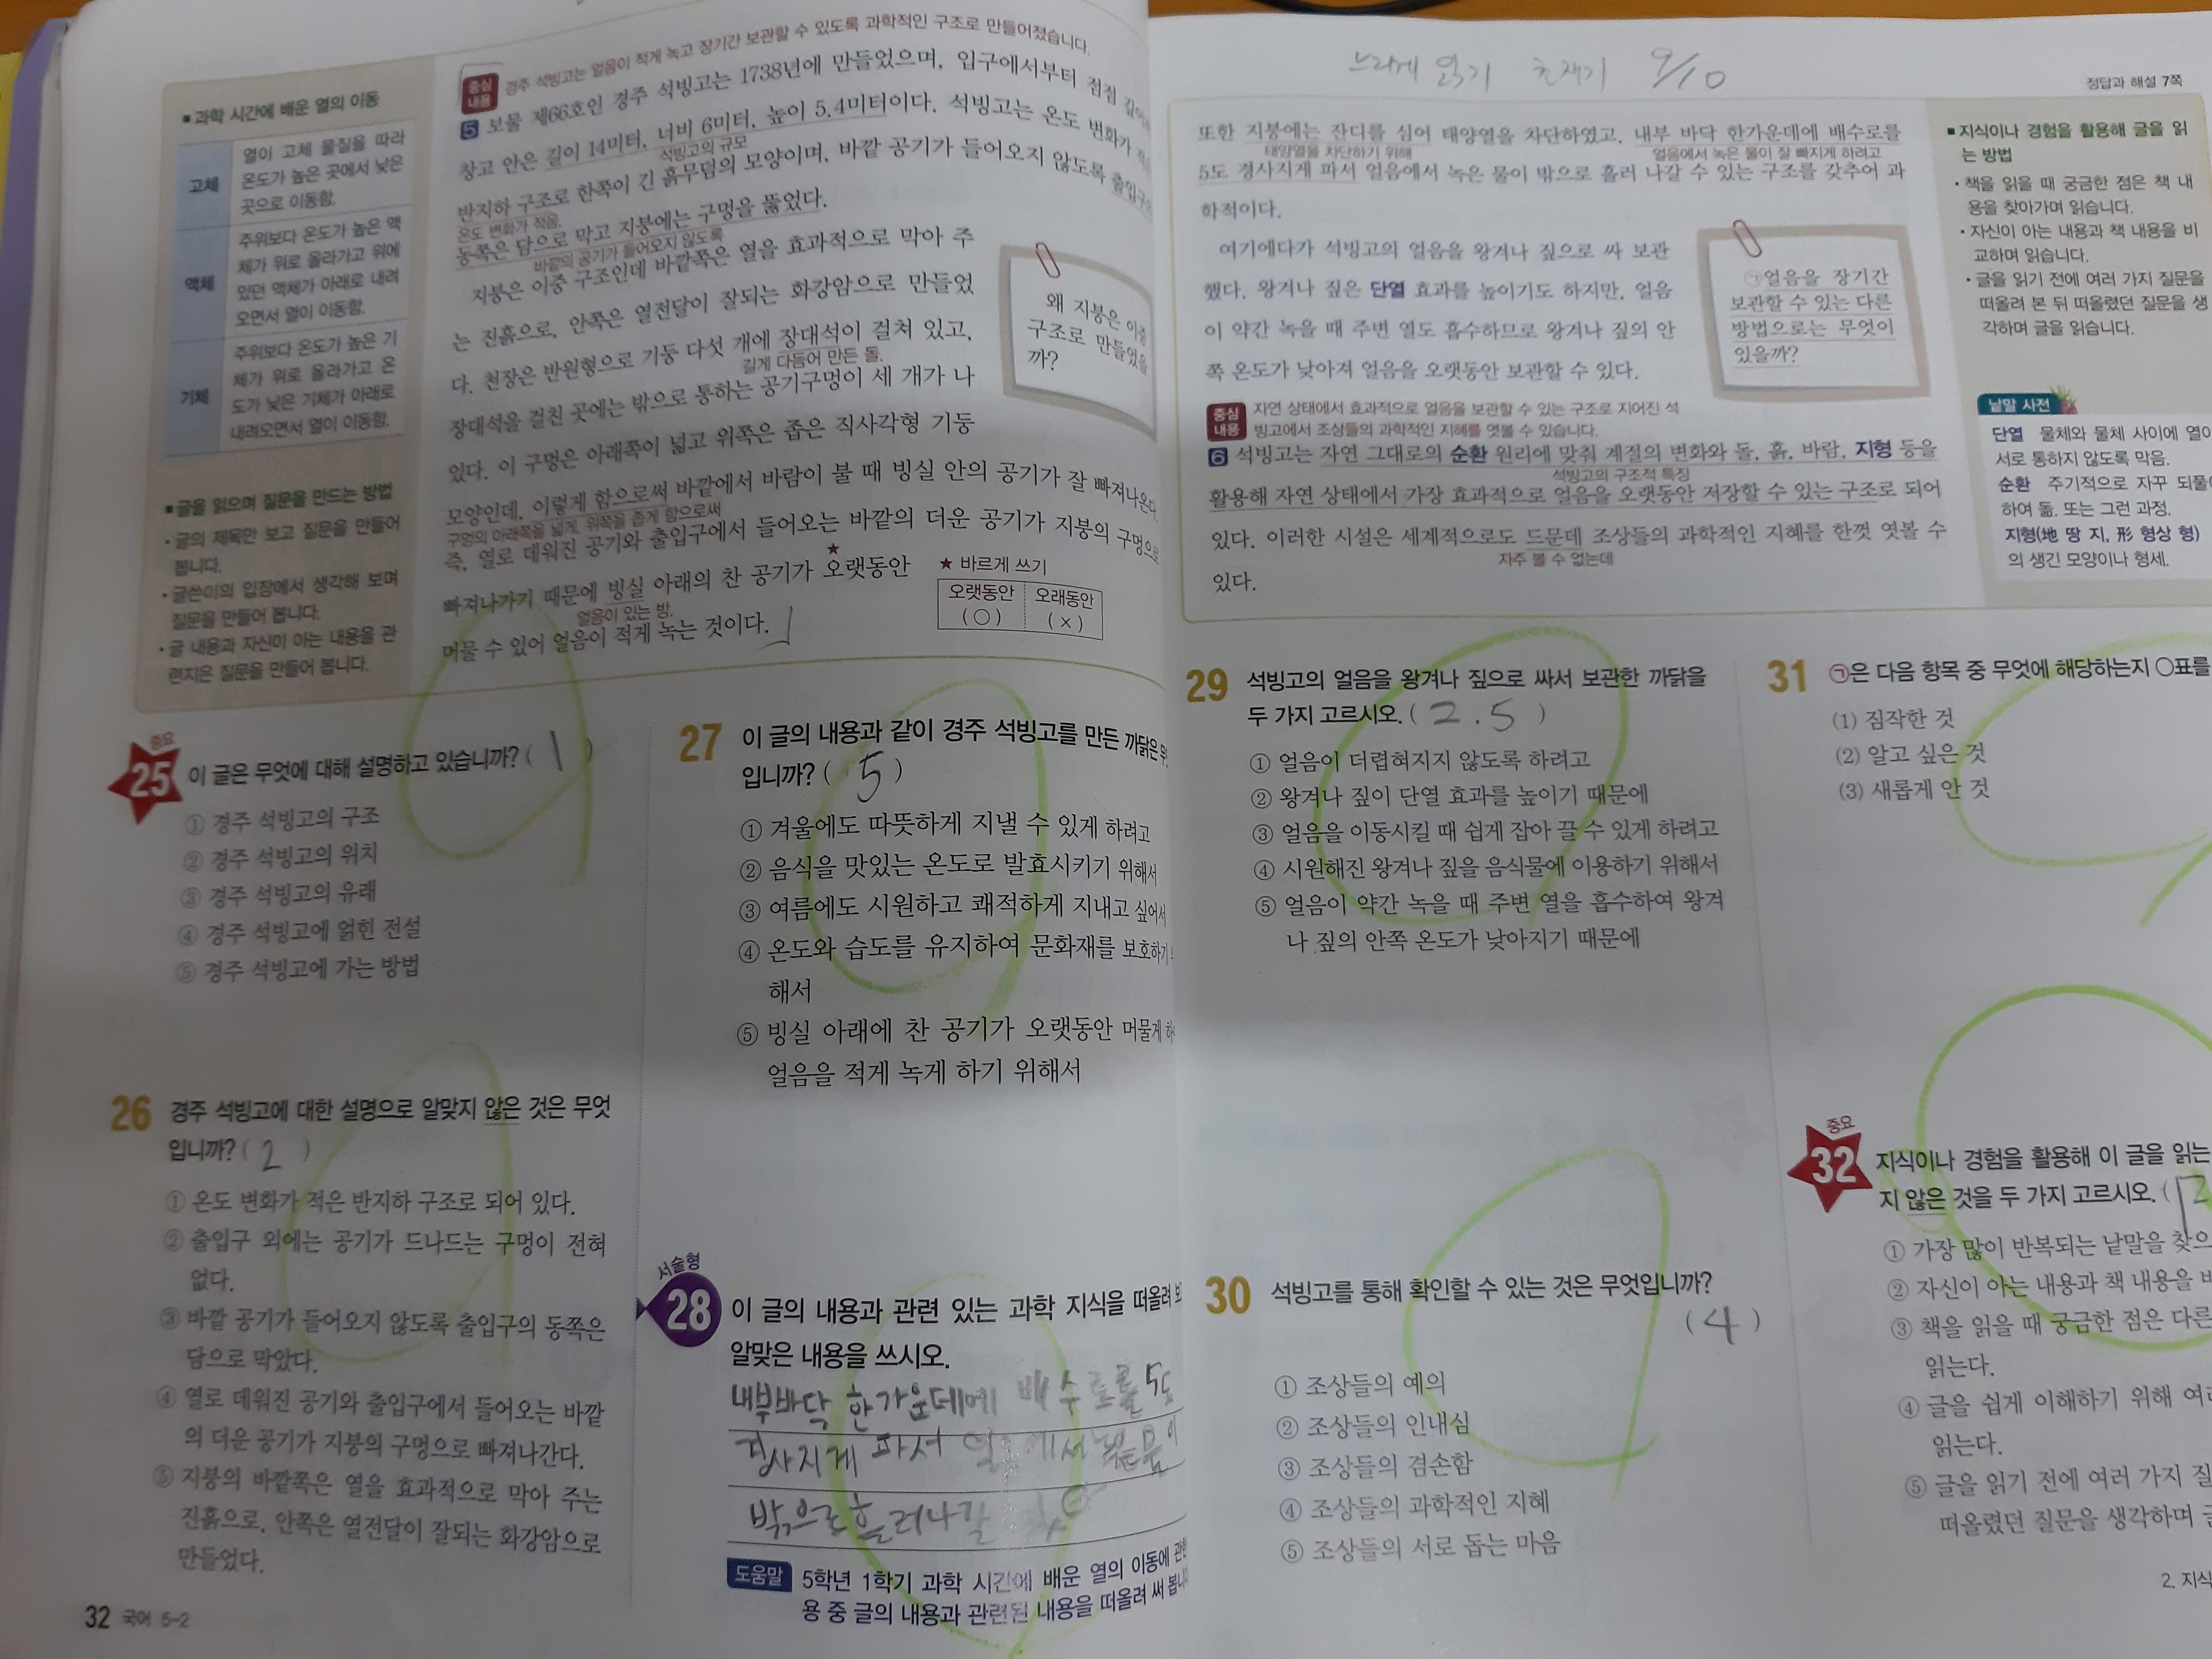 경주 석빙고는 얼음이 적게 녹고 장기간 보관할 수 있도록 과학적인 구조로 만들어졌습니다.
중심
내용
5 보물 제66호인 경주 석빙고는 1738년에 만들었으며, 입구에서부터 점점
창고 안은 길이 14미터, 너비 6미터, 높이 5.4미터이다. 석빙고는 온도 변화가
석빙고의 규모
반지하 구조로 한쪽이 긴 흙무덤의 모양이며, 바깥 공기가 들어오지 않도록
온도 변화가 적음.
동쪽은 담으로 막고 지붕에는 구멍을 뚫었다.
바깥의 공기가 들어오지 않도록
지붕은 이중 구조인데 바깥쪽은 열을 효과적으로 막아 주
는 진흙으로, 안쪽은 열전달이 잘되는 화강암으로 만들었
다. 천장은 반원형으로 기둥 다섯 개에 장대석이 걸쳐 있고,
길게 다듬어 만든 돌.
장대석을 걸친 곳에는 밖으로 통하는 공기구멍이 세 개가 나
있다. 이 구멍은 아래쪽이 넓고 위쪽은 좁은 직사각형 기둥
모양인데, 이렇게 함으로써 바깥에서 바람이 불 때 빙실 안의 공기가 잘 빠져나온다.
구멍의 아래쪽을 넓게, 위쪽을 좁게 함으로써
즉, 열로 데워진 공기와 출입구에서 들어오는 바깥의 더운 공기가 지붕의 구멍으로
빠져나가기 때문에 빙실 아래의 찬 공기가 오랫동안
얼음이 있는 방.
머물 수 있어 얼음이 적게 녹는 것이다.
왜 지붕은 이중
구조로 만들었을
까?
★ 바르게 쓰기
오랫동안 오래동안
(○) (×)
■ 과학 시간에 배운 열의 이동
고체
열이 고체 물질을 따라
온도가 높은 곳에서 낮은
곳으로 이동함.
액체
주위보다 온도가 높은 액
체가 위로 올라가고 위에
있던 액체가 아래로 내려
오면서 열이 이동함.
기체
주위보다 온도가 높은 기
체가 위로 올라가고 온
도가 낮은 기체가 아래로
내려오면서 열이 이동함.
■ 글을 읽으며 질문을 만드는 방법
• 글의 제목만 보고 질문을 만들어
봅니다.
• 글쓴이의 입장에서 생각해 보며
질문을 만들어 봅니다.
• 글 내용과 자신이 아는 내용을 관
련지은 질문을 만들어 봅니다.
중요
25 이 글은 무엇에 대해 설명하고 있습니까? ( 1 )
① 경주 석빙고의 구조
② 경주 석빙고의 위치
③ 경주 석빙고의 유래
④ 경주 석빙고에 얽힌 전설
⑤ 경주 석빙고에 가는 방법
26 경주 석빙고에 대한 설명으로 알맞지 않은 것은 무엇
입니까? ( 2 )
① 온도 변화가 적은 반지하 구조로 되어 있다.
② 출입구 외에는 공기가 드나드는 구멍이 전혀
없다.
③ 바깥 공기가 들어오지 않도록 출입구의 동쪽은
담으로 막았다.
④ 열로 데워진 공기와 출입구에서 들어오는 바깥
의 더운 공기가 지붕의 구멍으로 빠져나간다.
⑤ 지붕의 바깥쪽은 열을 효과적으로 막아 주는
진흙으로, 안쪽은 열전달이 잘되는 화강암으로
만들었다.
32 국어 5-2
27 이 글의 내용과 같이 경주 석빙고를 만든 까닭은
입니까? ( 5 )
① 겨울에도 따뜻하게 지낼 수 있게 하려고
② 음식을 맛있는 온도로 발효시키기 위해서
③ 여름에도 시원하고 쾌적하게 지내고 싶어서
④ 온도와 습도를 유지하여 문화재를 보호하기
해서
⑤ 빙실 아래에 찬 공기가 오랫동안 머물게
얼음을 적게 녹게 하기 위해서
서술형
28 이 글의 내용과 관련 있는 과학 지식을 떠올려
알맞은 내용을 쓰시오.
내부바닥 한가운데에 배수로를 5도
경사지게 파서 녹은물이
밖으로 흘러나갈
도움말 5학년 1학기 과학 시간에 배운 열의 이동에
용 중 글의 내용과 관련된 내용을 떠올려 써
느리게 읽기 9/10
정답과 해설 7쪽
또한 지붕에는 잔디를 심어 태양열을 차단하였고, 내부 바닥 한가운데에 배수로를
태양열을 차단하기 위해 얼음에서 녹은 물이 잘 빠지게 하려고
5도 경사지게 파서 얼음에서 녹은 물이 밖으로 흘러 나갈 수 있는 구조를 갖추어 과
학적이다.
여기에다가 석빙고의 얼음을 왕겨나 짚으로 싸 보관
했다. 왕겨나 짚은 단열 효과를 높이기도 하지만, 얼음
이 약간 녹을 때 주변 열도 흡수하므로 왕겨나 짚의 안
쪽 온도가 낮아져 얼음을 오랫동안 보관할 수 있다.
㉠얼음을 장기간
보관할 수 있는 다른
방법으로는 무엇이
있을까?
중심
내용
자연 상태에서 효과적으로 얼음을 보관할 수 있는 구조로 지어진 석
빙고에서 조상들의 과학적인 지혜를 엿볼 수 있습니다.
6 석빙고는 자연 그대로의 순환 원리에 맞춰 계절의 변화와 돌, 흙, 바람, 지형 등을
석빙고의 구조적 특징
활용해 자연 상태에서 가장 효과적으로 얼음을 오랫동안 저장할 수 있는 구조로 되어
있다. 이러한 시설은 세계적으로도 드문데 조상들의 과학적인 지혜를 한껏 엿볼 수
자주 볼 수 없는데
있다.
■ 지식이나 경험을 활용해 글을 읽
는 방법
• 책을 읽을 때 궁금한 점은 책 내
용을 찾아가며 읽습니다.
• 자신이 아는 내용과 책 내용을 비
교하며 읽습니다.
• 글을 읽기 전에 여러 가지 질문을
떠올려 본 뒤 떠올렸던 질문을 생
각하며 글을 읽습니다.
낱말 사전
단열 물체와 물체 사이에 열이
서로 통하지 않도록 막음.
순환 주기적으로 자꾸 되풀이
하여 돎. 또는 그런 과정.
지형(地 땅 지, 形 형상 형)
의 생긴 모양이나 형세.
29 석빙고의 얼음을 왕겨나 짚으로 싸서 보관한 까닭을
두 가지 고르시오. ( 2 . 5 )
① 얼음이 더럽혀지지 않도록 하려고
② 왕겨나 짚이 단열 효과를 높이기 때문에
③ 얼음을 이동시킬 때 쉽게 잡아 끌 수 있게 하려고
④ 시원해진 왕겨나 짚을 음식물에 이용하기 위해서
⑤ 얼음이 약간 녹을 때 주변 열을 흡수하여 왕겨
나 짚의 안쪽 온도가 낮아지기 때문에
30 석빙고를 통해 확인할 수 있는 것은 무엇입니까?
( 4 )
① 조상들의 예의
② 조상들의 인내심
③ 조상들의 겸손함
④ 조상들의 과학적인 지혜
⑤ 조상들의 서로 돕는 마음
31 ㉠은 다음 항목 중 무엇에 해당하는지 ○표를
(1) 짐작한 것
(2) 알고 싶은 것
(3) 새롭게 안 것
중요
32 지식이나 경험을 활용해 이 글을 읽는
지 않은 것을 두 가지 고르시오. (
① 가장 많이 반복되는 낱말을
② 자신이 아는 내용과 책 내용을
③ 책을 읽을 때 궁금한 점은 다른
읽는다.
④ 글을 쉽게 이해하기 위해
읽는다.
⑤ 글을 읽기 전에 여러 가지
떠올렸던 질문을 생각하며
2. 지식